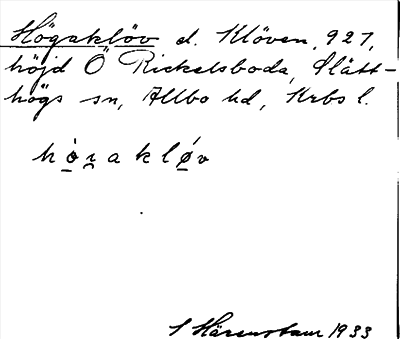 Högaklöv el. Klöven, 927,
höjd Ö Rickelsboda, Slätt-
högs sn, Allbo hd, Krbs l.
hò̱ɀ̯aklǿ̱v
S Härenstam 1933